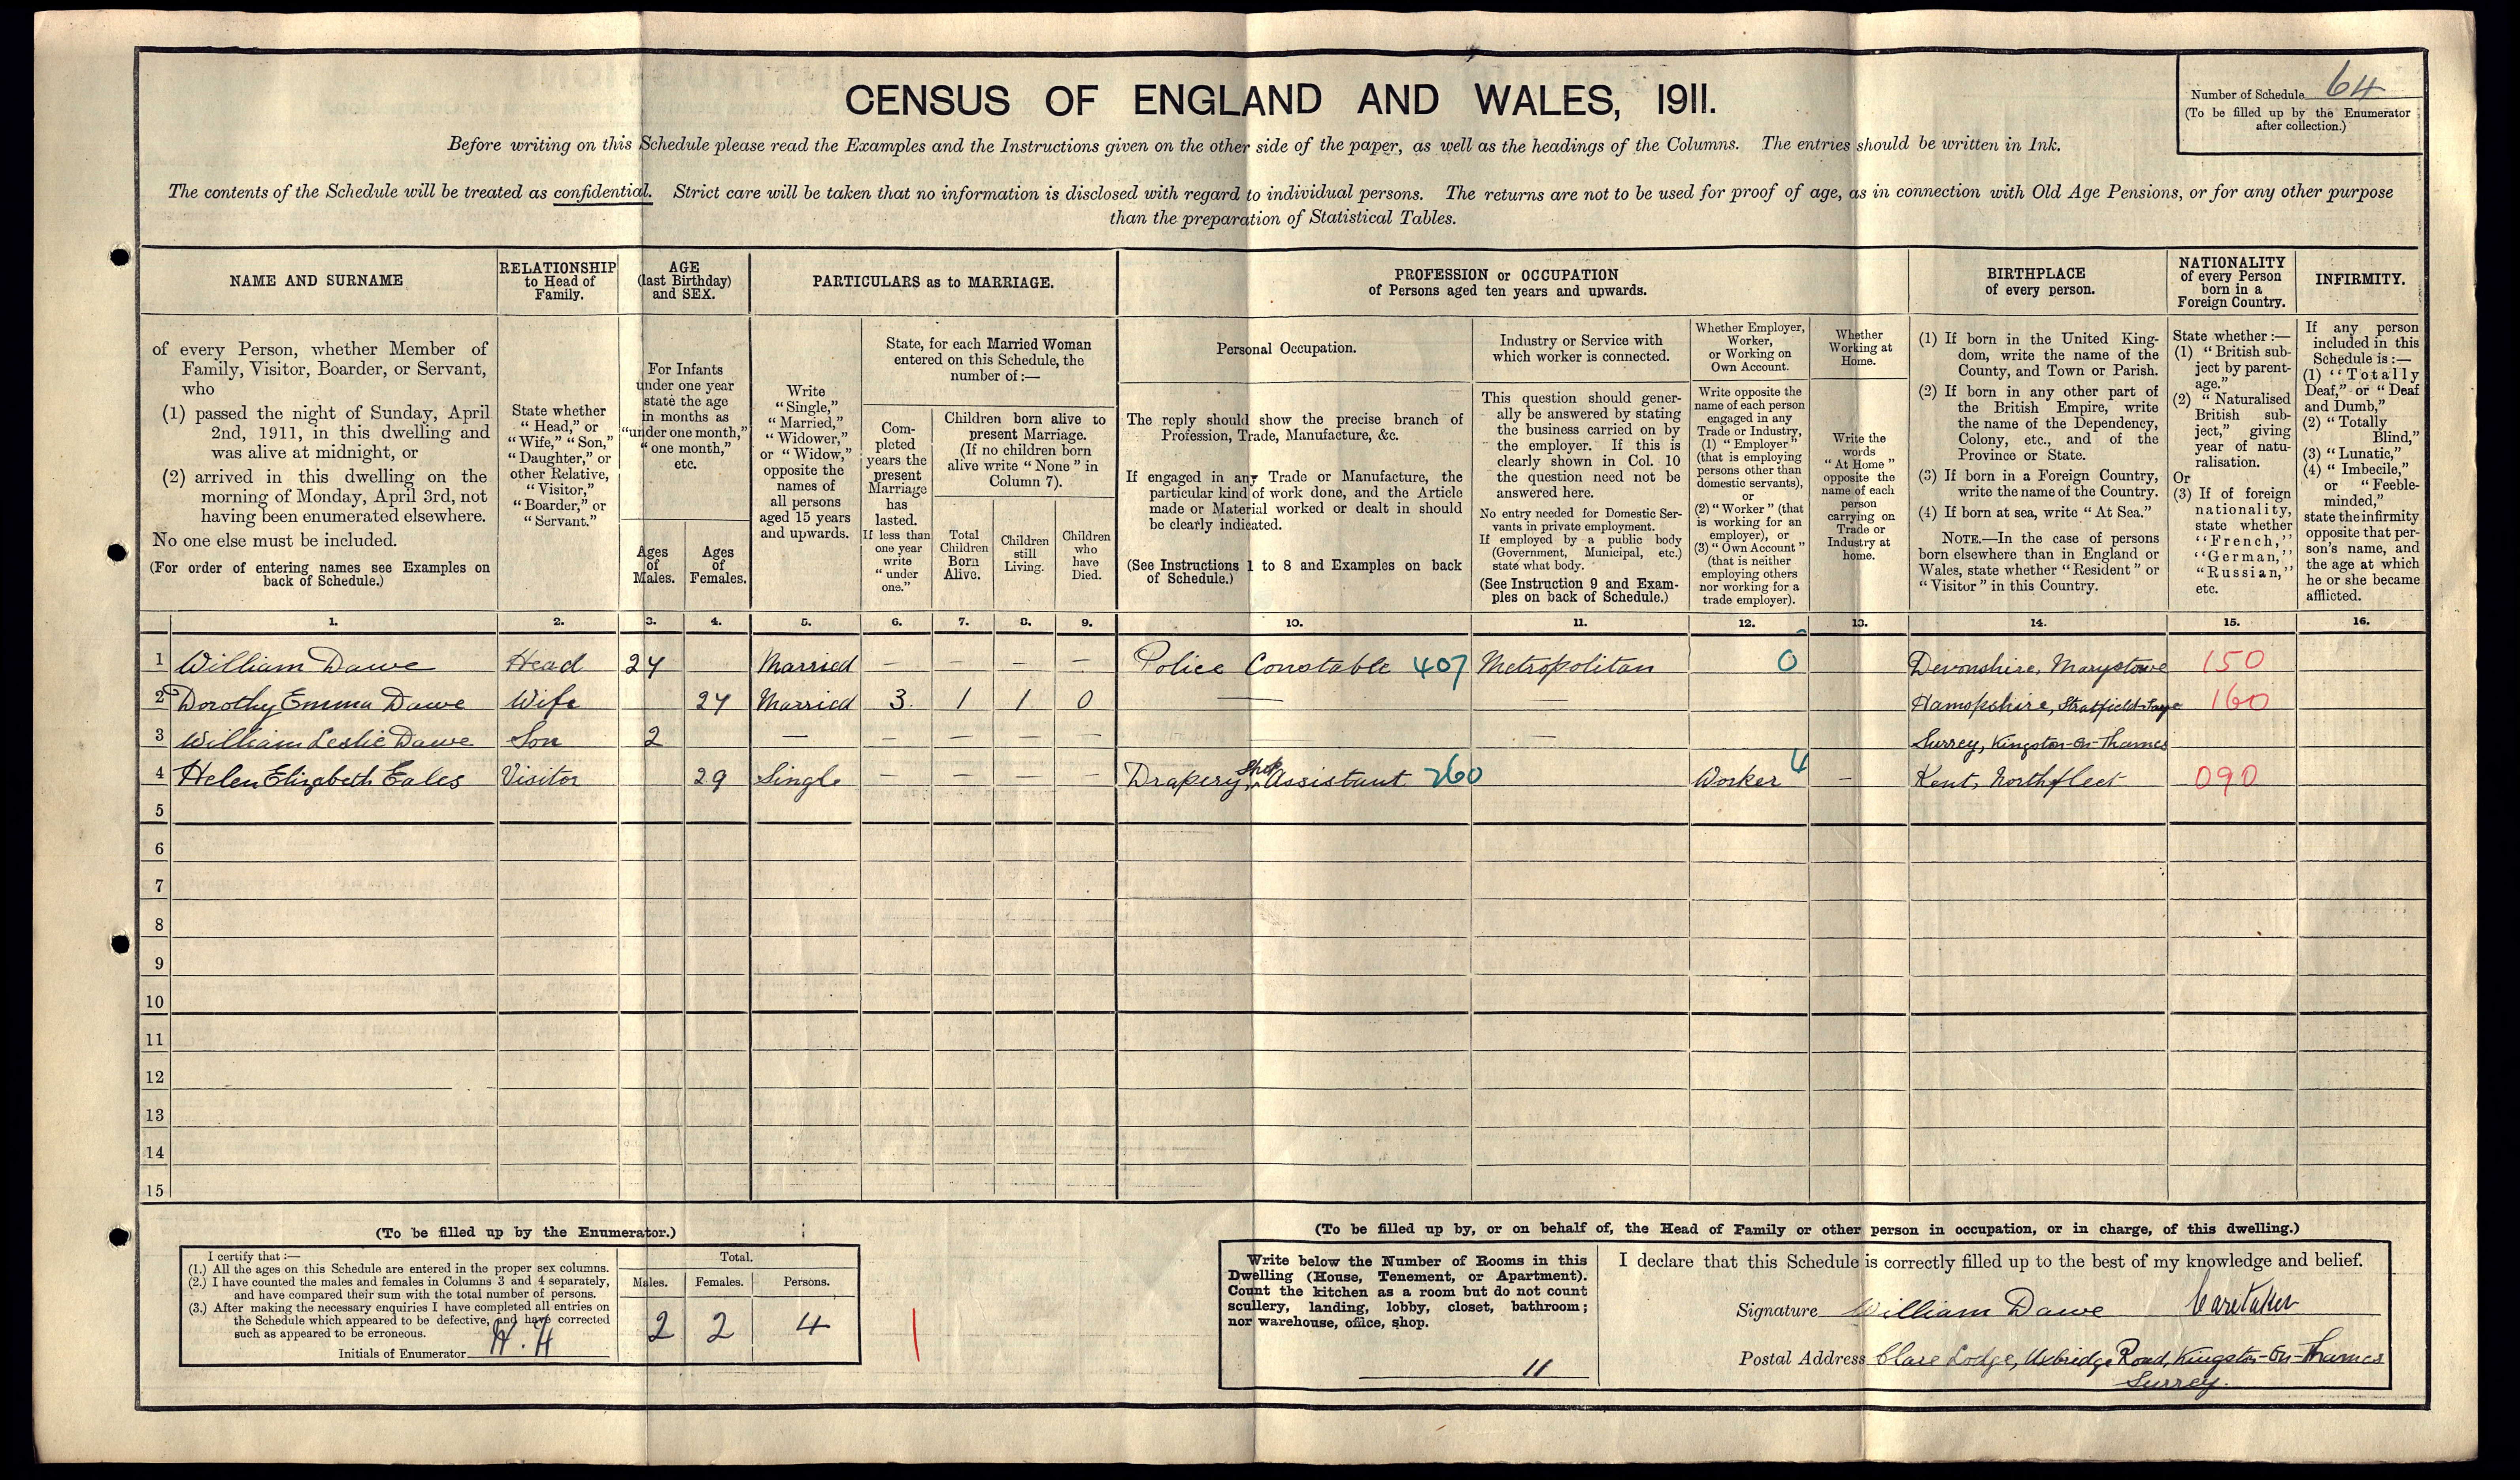 CENSUS OF ENGLAND AND WALES, 1911.
Number of Schedule 64
(To be filled up by the Enumerator
after collection.)
Before writing on this Schedule please read the Examples and the Instructions given on the other side of the paper, as well as the headings of the Columns. The entries should be written in Ink.
The contents of the Schedule will be treated as confidential. Strict care will be taken that no information is disclosed with regard to individual persons. The returns are not to be used for proof of age, as in connection with Old Age Pensions, or for any other purpose
than the preparation of Statistical Tables.
NAME AND SURNAME
RELATIONSHIP
to Head of
Family.
AGE
(last Birthday)
and SEX.
PARTICULARS as to MARRIAGE.
PROFESSION or OCCUPATION
of Persons aged ten years and upwards.
BIRTHPLACE
of every person.
NATIONALITY
of every Person
born in a
Foreign Country.
INFIRMITY.
of every Person, whether Member of
Family, Visitor, Boarder, or Servant,
who
(1) passed the night of Sunday, April
2nd, 1911, in this dwelling and
was alive at midnight, or
(2) arrived in this dwelling on the
morning of Monday, April 3rd, not
having been enumerated elsewhere.
No one else must be included.
(For order of entering names see Examples on
back of Schedule.)
State whether
"Head," or
"Wife," "Son,"
"Daughter," or
other Relative,
"Visitor,"
"Boarder," or
"Servant."
For Infants
under one year
state the age
in months as
"under one month,"
"one month,"
etc.
Ages
of
Males.
Ages
of
Females.
Write
"Single,"
"Married,"
"Widower,"
or "Widow,"
opposite the
names of
all persons
aged 15 years
and upwards.
State, for each Married Woman
entered on this Schedule, the
number of:—
Com-
pleted
years the
present
Marriage
has
lasted.
If less than
one year
write
"under
one."
Children born alive to
present Marriage.
(If no children born
alive write "None" in
Column 7).
Total
Children
Born
Alive.
Children
still
Living.
Children
who
have
Died.
Personal Occupation.
The reply should show the precise branch of
Profession, Trade, Manufacture, &c.
If engaged in any Trade or Manufacture, the
particular kind of work done, and the Article
made or Material worked or dealt in should
be clearly indicated.
(See Instructions 1 to 8 and Examples on back
of Schedule.)
Industry or Service with
which worker is connected.
This question should gener-
ally be answered by stating
the business carried on by
the employer. If this is
clearly shown in Col. 10
the question need not be
answered here.
No entry needed for Domestic Ser-
vants in private employment.
If employed by a public body
(Government, Municipal, etc.)
state what body.
(See Instruction 9 and Exam-
ples on back of Schedule.)
Whether Employer,
Worker,
or Working on
Own Account.
Write opposite the
name of each person
engaged in any
Trade or Industry,
(1) "Employer"
(that is employing
persons other than
domestic servants),
or
(2) "Worker" (that
is working for an
employer), or
(3) "Own Account"
(that is neither
employing others
nor working for a
trade employer).
Whether
Working at
Home.
Write the
words
"At Home"
opposite the
name of each
person
carrying on
Trade or
Industry at
home.
(1) If born in the United King-
dom, write the name of the
County, and Town or Parish.
(2) If born in any other part of
the British Empire, write
the name of the Dependency,
Colony, etc., and of the
Province or State.
(3) If born in a Foreign Country,
write the name of the Country.
(4) If born at sea, write "At Sea."
NOTE.—In the case of persons
born elsewhere than in England or
Wales, state whether "Resident" or
"Visitor" in this Country.
State whether:—
(1) "British sub-
ject by parent-
age."
(2) "Naturalised
British sub-
ject," giving
year of natu-
ralisation.
Or
(3) If of foreign
nationality,
state whether
"French,"
"German,"
"Russian,"
etc.
If any person
included in this
Schedule is:—
(1) "Totally
Deaf," or "Deaf
and Dumb,"
(2) "Totally
Blind,"
(3) "Lunatic,"
(4) "Imbecile,"
or "Feeble-
minded,"
state the infirmity
opposite that per-
son's name, and
the age at which
he or she became
afflicted.
1. 2. 3. 4. 5. 6. 7. 8. 9. 10. 11. 12. 13. 14. 15. 16.
1 William Dawe Head 24 Married — — — — Police Constable 407 Metropolitan 0 Devonshire, Marystowe 150
2 Dorothy Emma Dawe Wife 24 Married 3 1 1 0 — — Hamopshire, Stratfield-Saye 160
3 William Leslie Dawe Son 2 — — — — — — Surrey, Kingston-on-Thames
4 Helen Elizabeth Eales Visitor 29 Single — — — — Drapery Shop Assistant 260 Worker 4 — Kent, Northfleet 090
5
6
7
8
9
10
11
12
13
14
15
(To be filled up by the Enumerator.)
I certify that:—
(1.) All the ages on this Schedule are entered in the proper sex columns.
(2.) I have counted the males and females in Columns 3 and 4 separately,
and have compared their sum with the total number of persons.
(3.) After making the necessary enquiries I have completed all entries on
the Schedule which appeared to be defective, and have corrected
such as appeared to be erroneous.
Initials of Enumerator H. H
Total.
Males. Females. Persons.
2 2 4
(To be filled up by, or on behalf of, the Head of Family or other person in occupation, or in charge, of this dwelling.)
Write below the Number of Rooms in this
Dwelling (House, Tenement, or Apartment).
Count the kitchen as a room but do not count
scullery, landing, lobby, closet, bathroom;
nor warehouse, office, shop.
11
I declare that this Schedule is correctly filled up to the best of my knowledge and belief.
Signature William Dawe Caretaker
Postal Address Clare Lodge, Uxbridge Road, Kingston-on-Thames
Surrey.